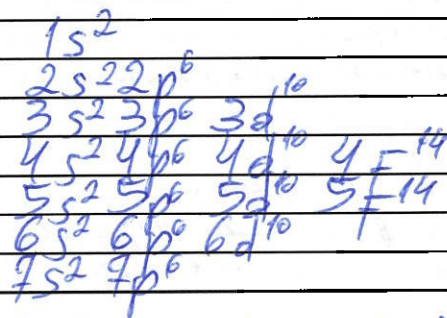 1s²
2s² 2p⁶
3s² 3p⁶ 3d¹⁰
4s² 4p⁶ 4d¹⁰ 4F¹⁴
5s² 5p⁶ 5d¹⁰ 5F¹⁴
6s² 6p⁶ 6d¹⁰
7s² 7p⁶